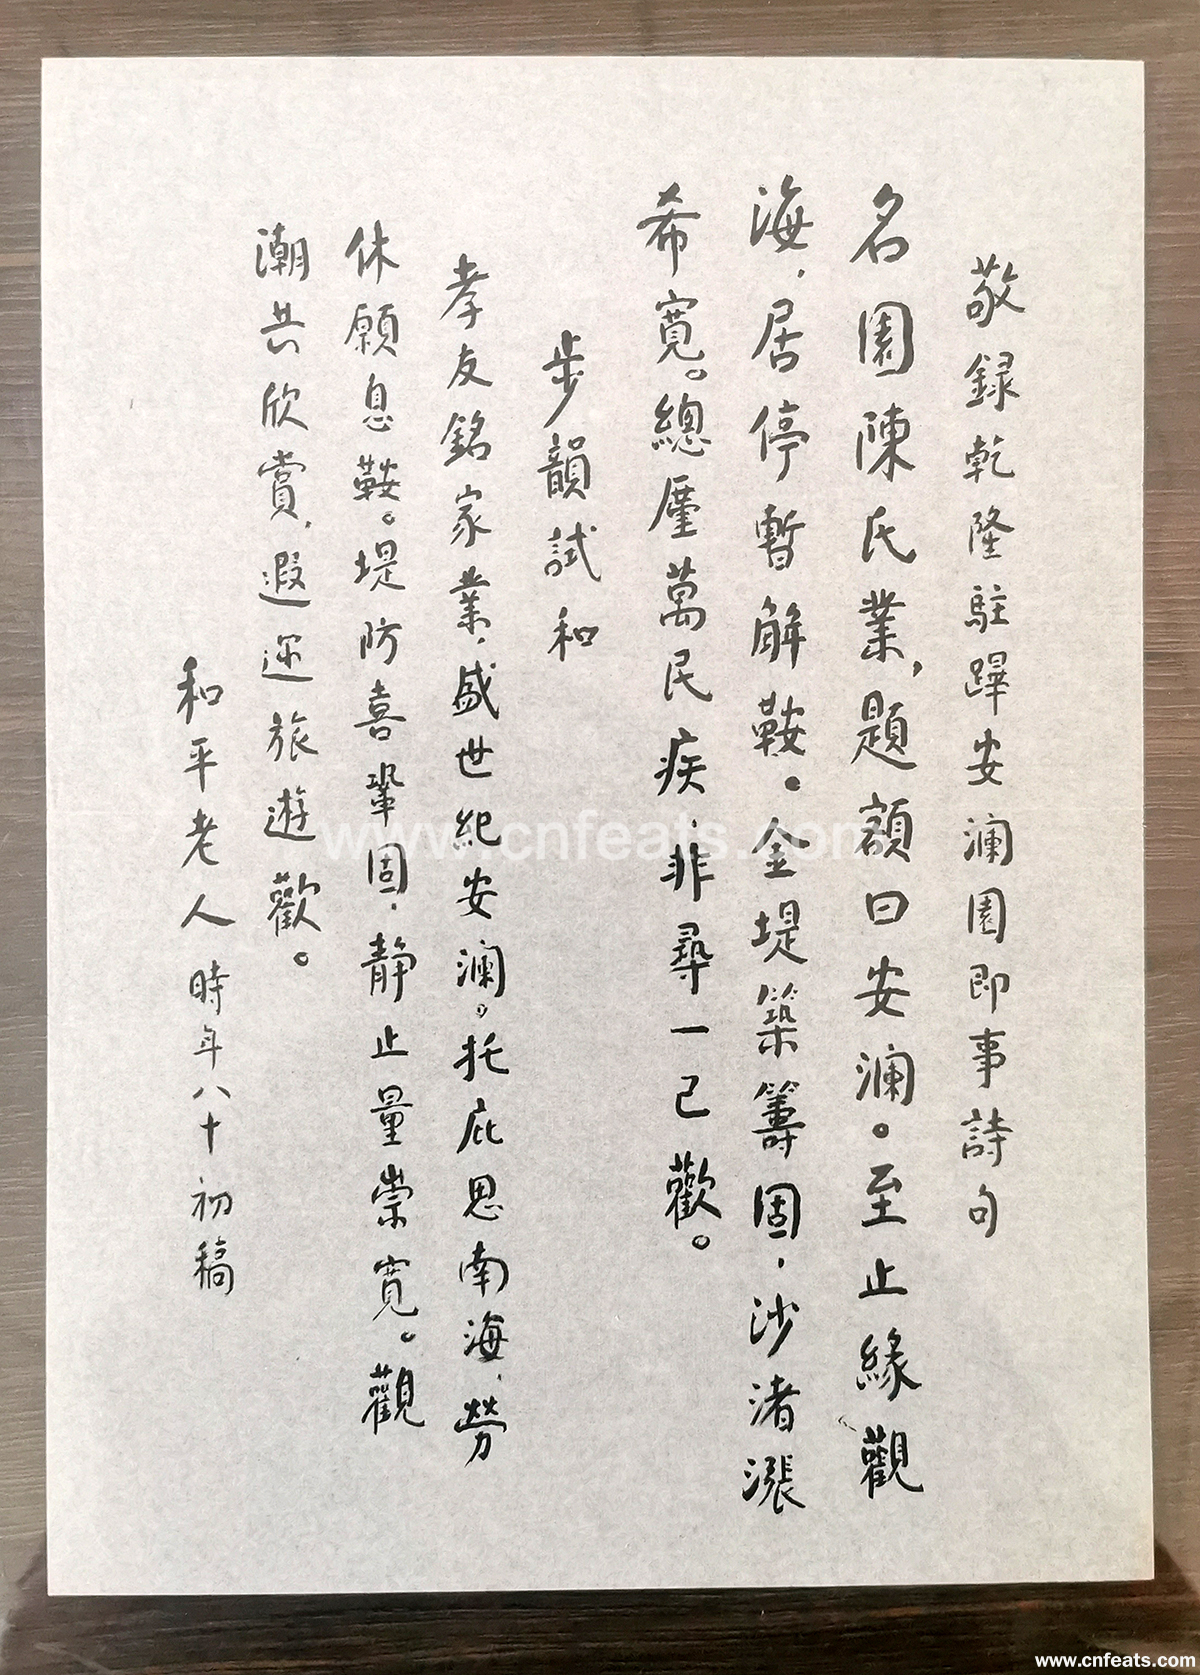 敬録乾隆駐蹕安瀾園即事詩句
名園陳氏業，題額曰安瀾。至止緣觀
海，居停暫解鞍。金堤築籌固，沙渚漲
希寬。總廑萬民疾，非尋一己歡。
步韻試和
孝友銘家業，盛世紀安瀾。托庇思南海，勞
休願息鞍。堤防喜鞏固，静止量崇寬。觀
潮共欣賞，遐迩旅遊歡。
和平老人時年八十初稿
www.cnfeats.com
www.cnfeats.com